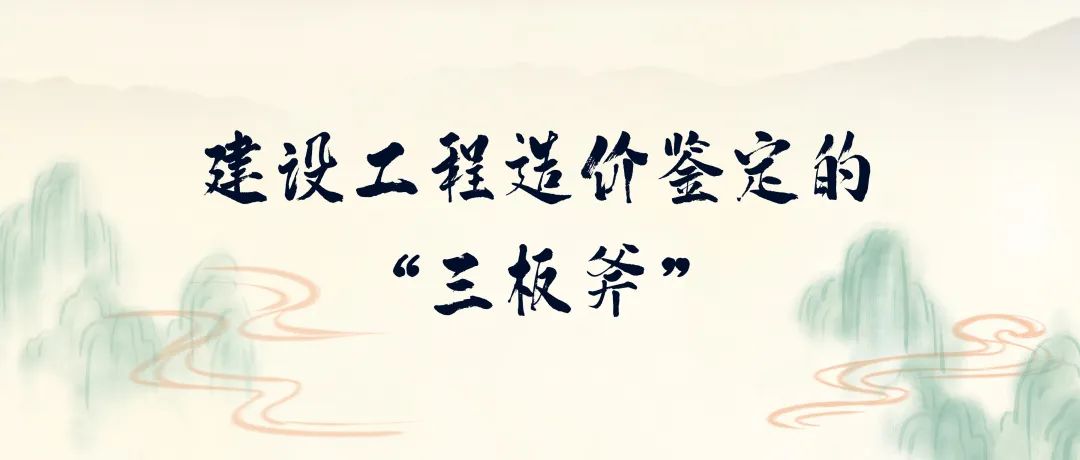 建设工程造价鉴定的
“三板斧”